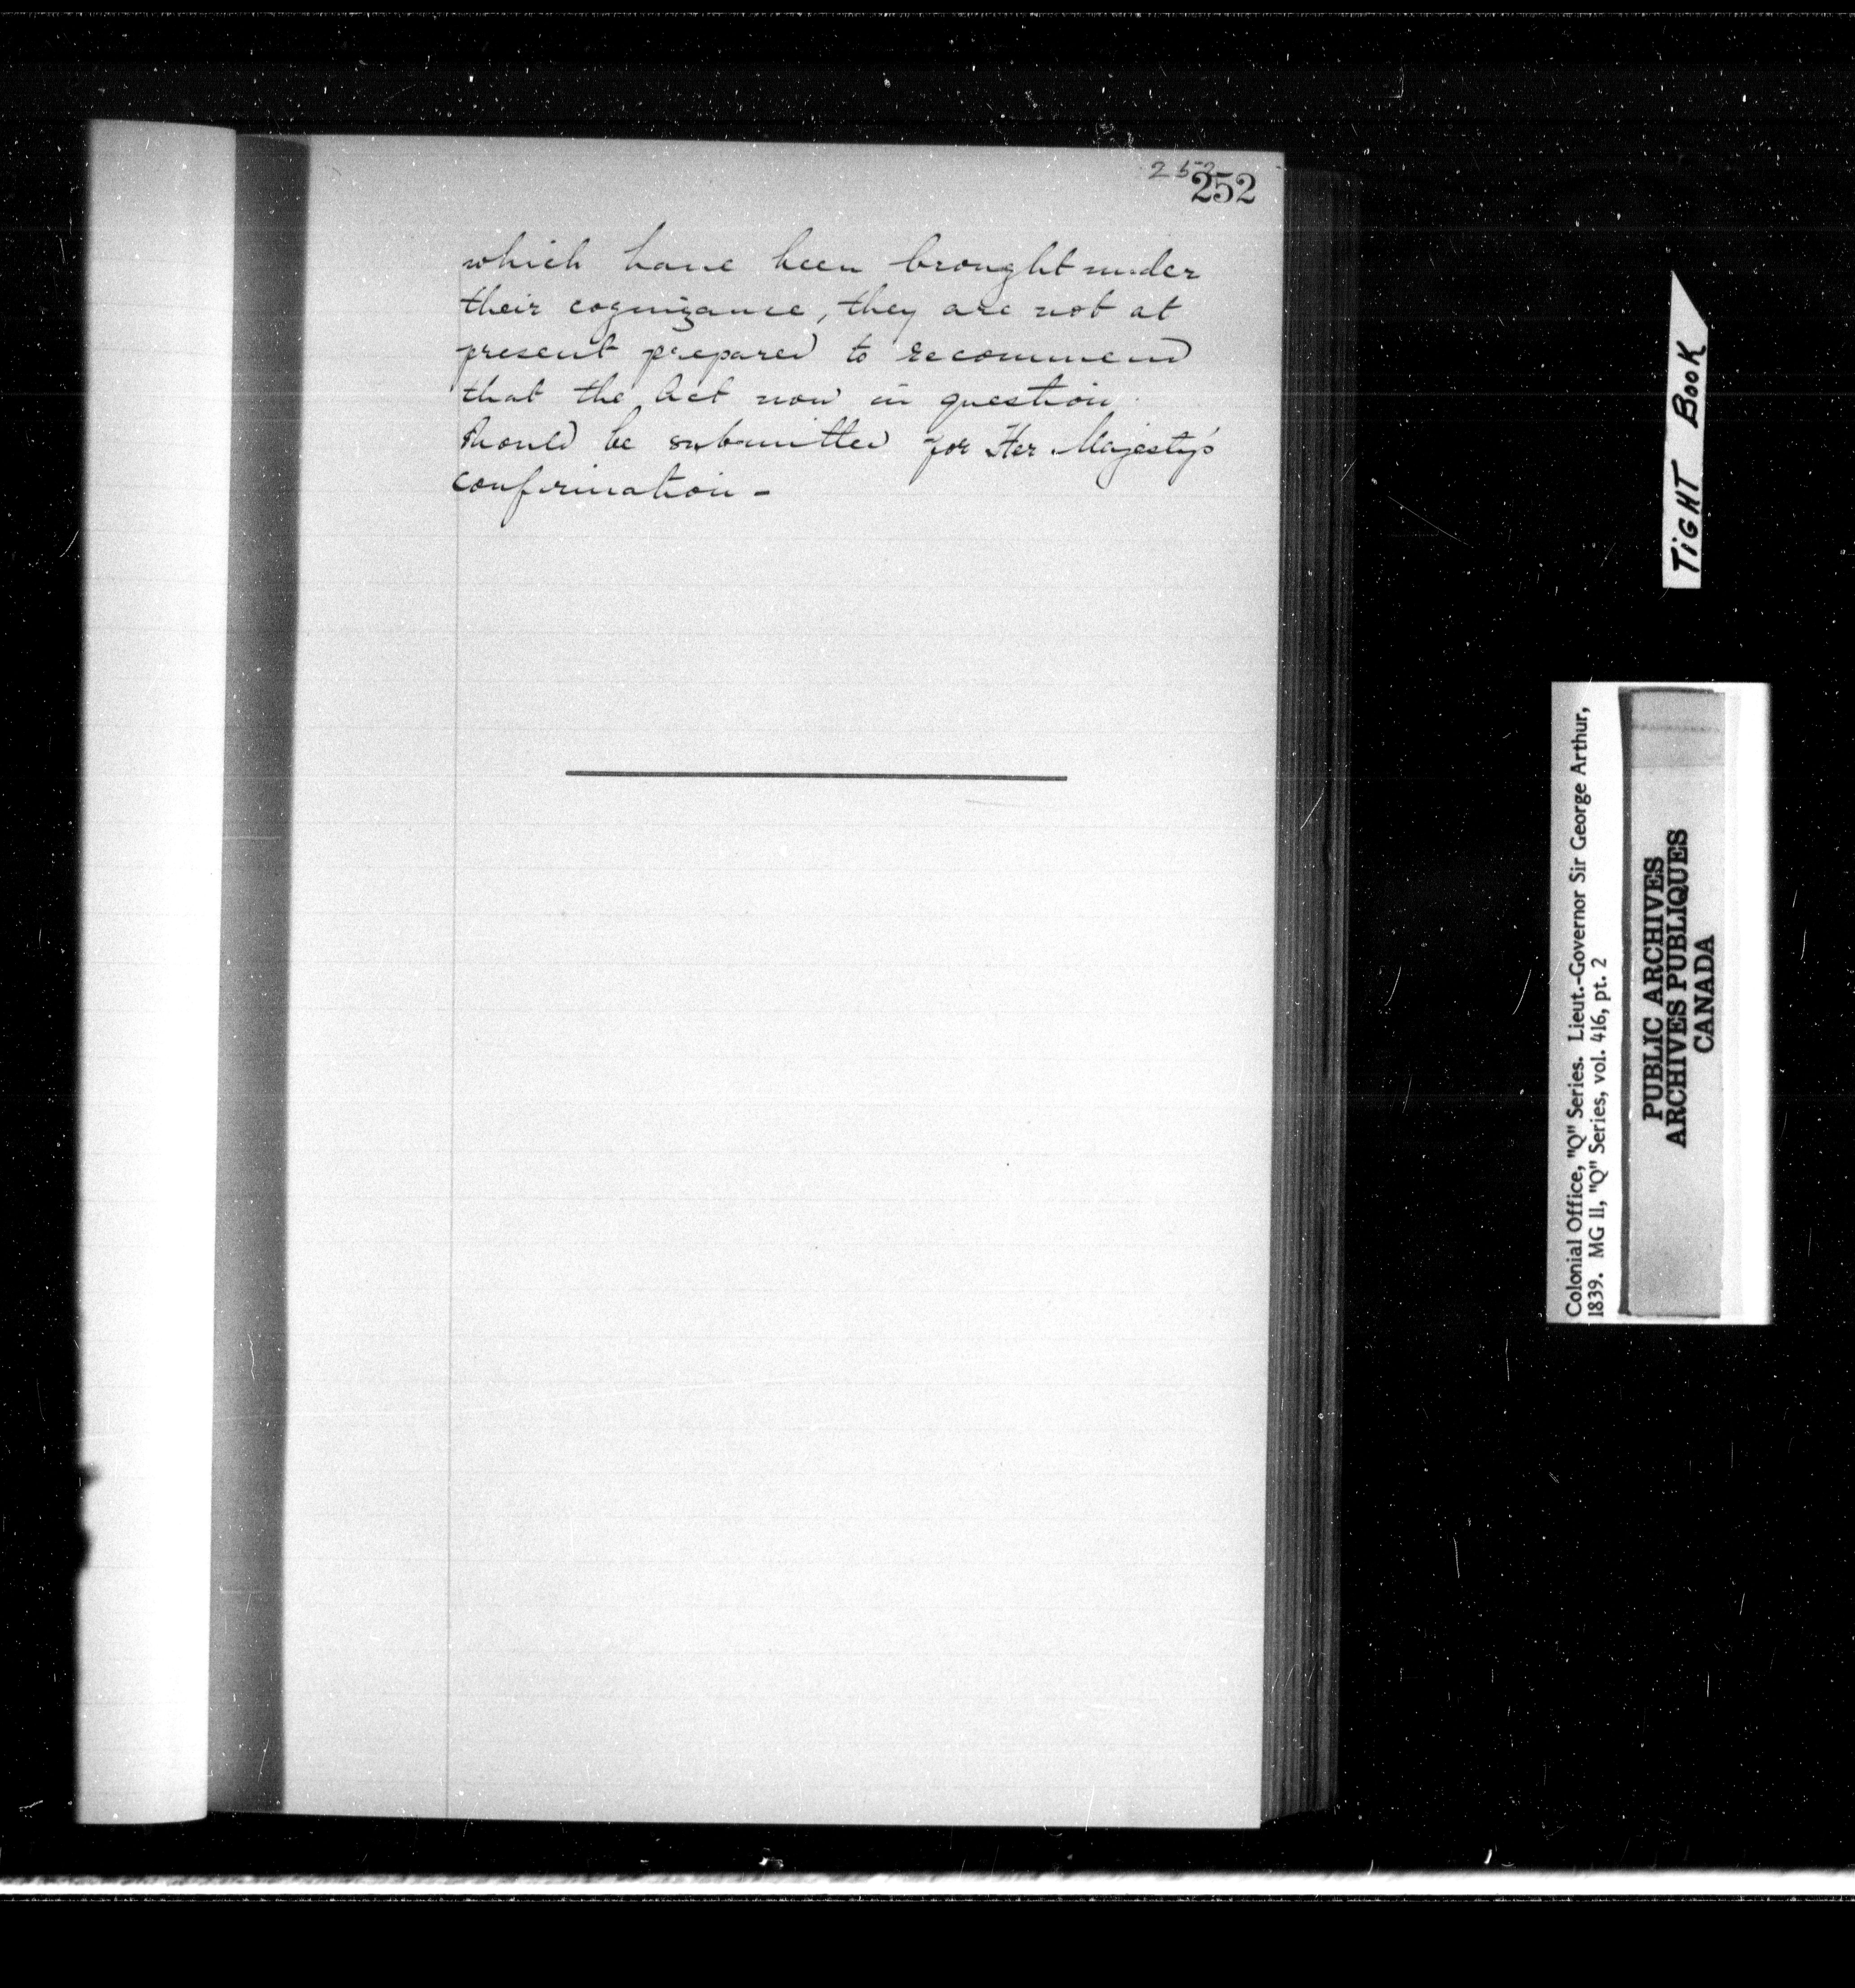 252
252
which have been brought under
their cognizance, they are not at
present prepared to recommend
that the Act now in question
should be submitted for Her Majesty's
confirmation -
TIGHT BOOK
Colonial Office, "Q" Series. Lieut.-Governor Sir George Arthur,
1839. MG 11, "Q" Series, vol. 416, pt. 2
PUBLIC ARCHIVES
ARCHIVES PUBLIQUES
CANADA